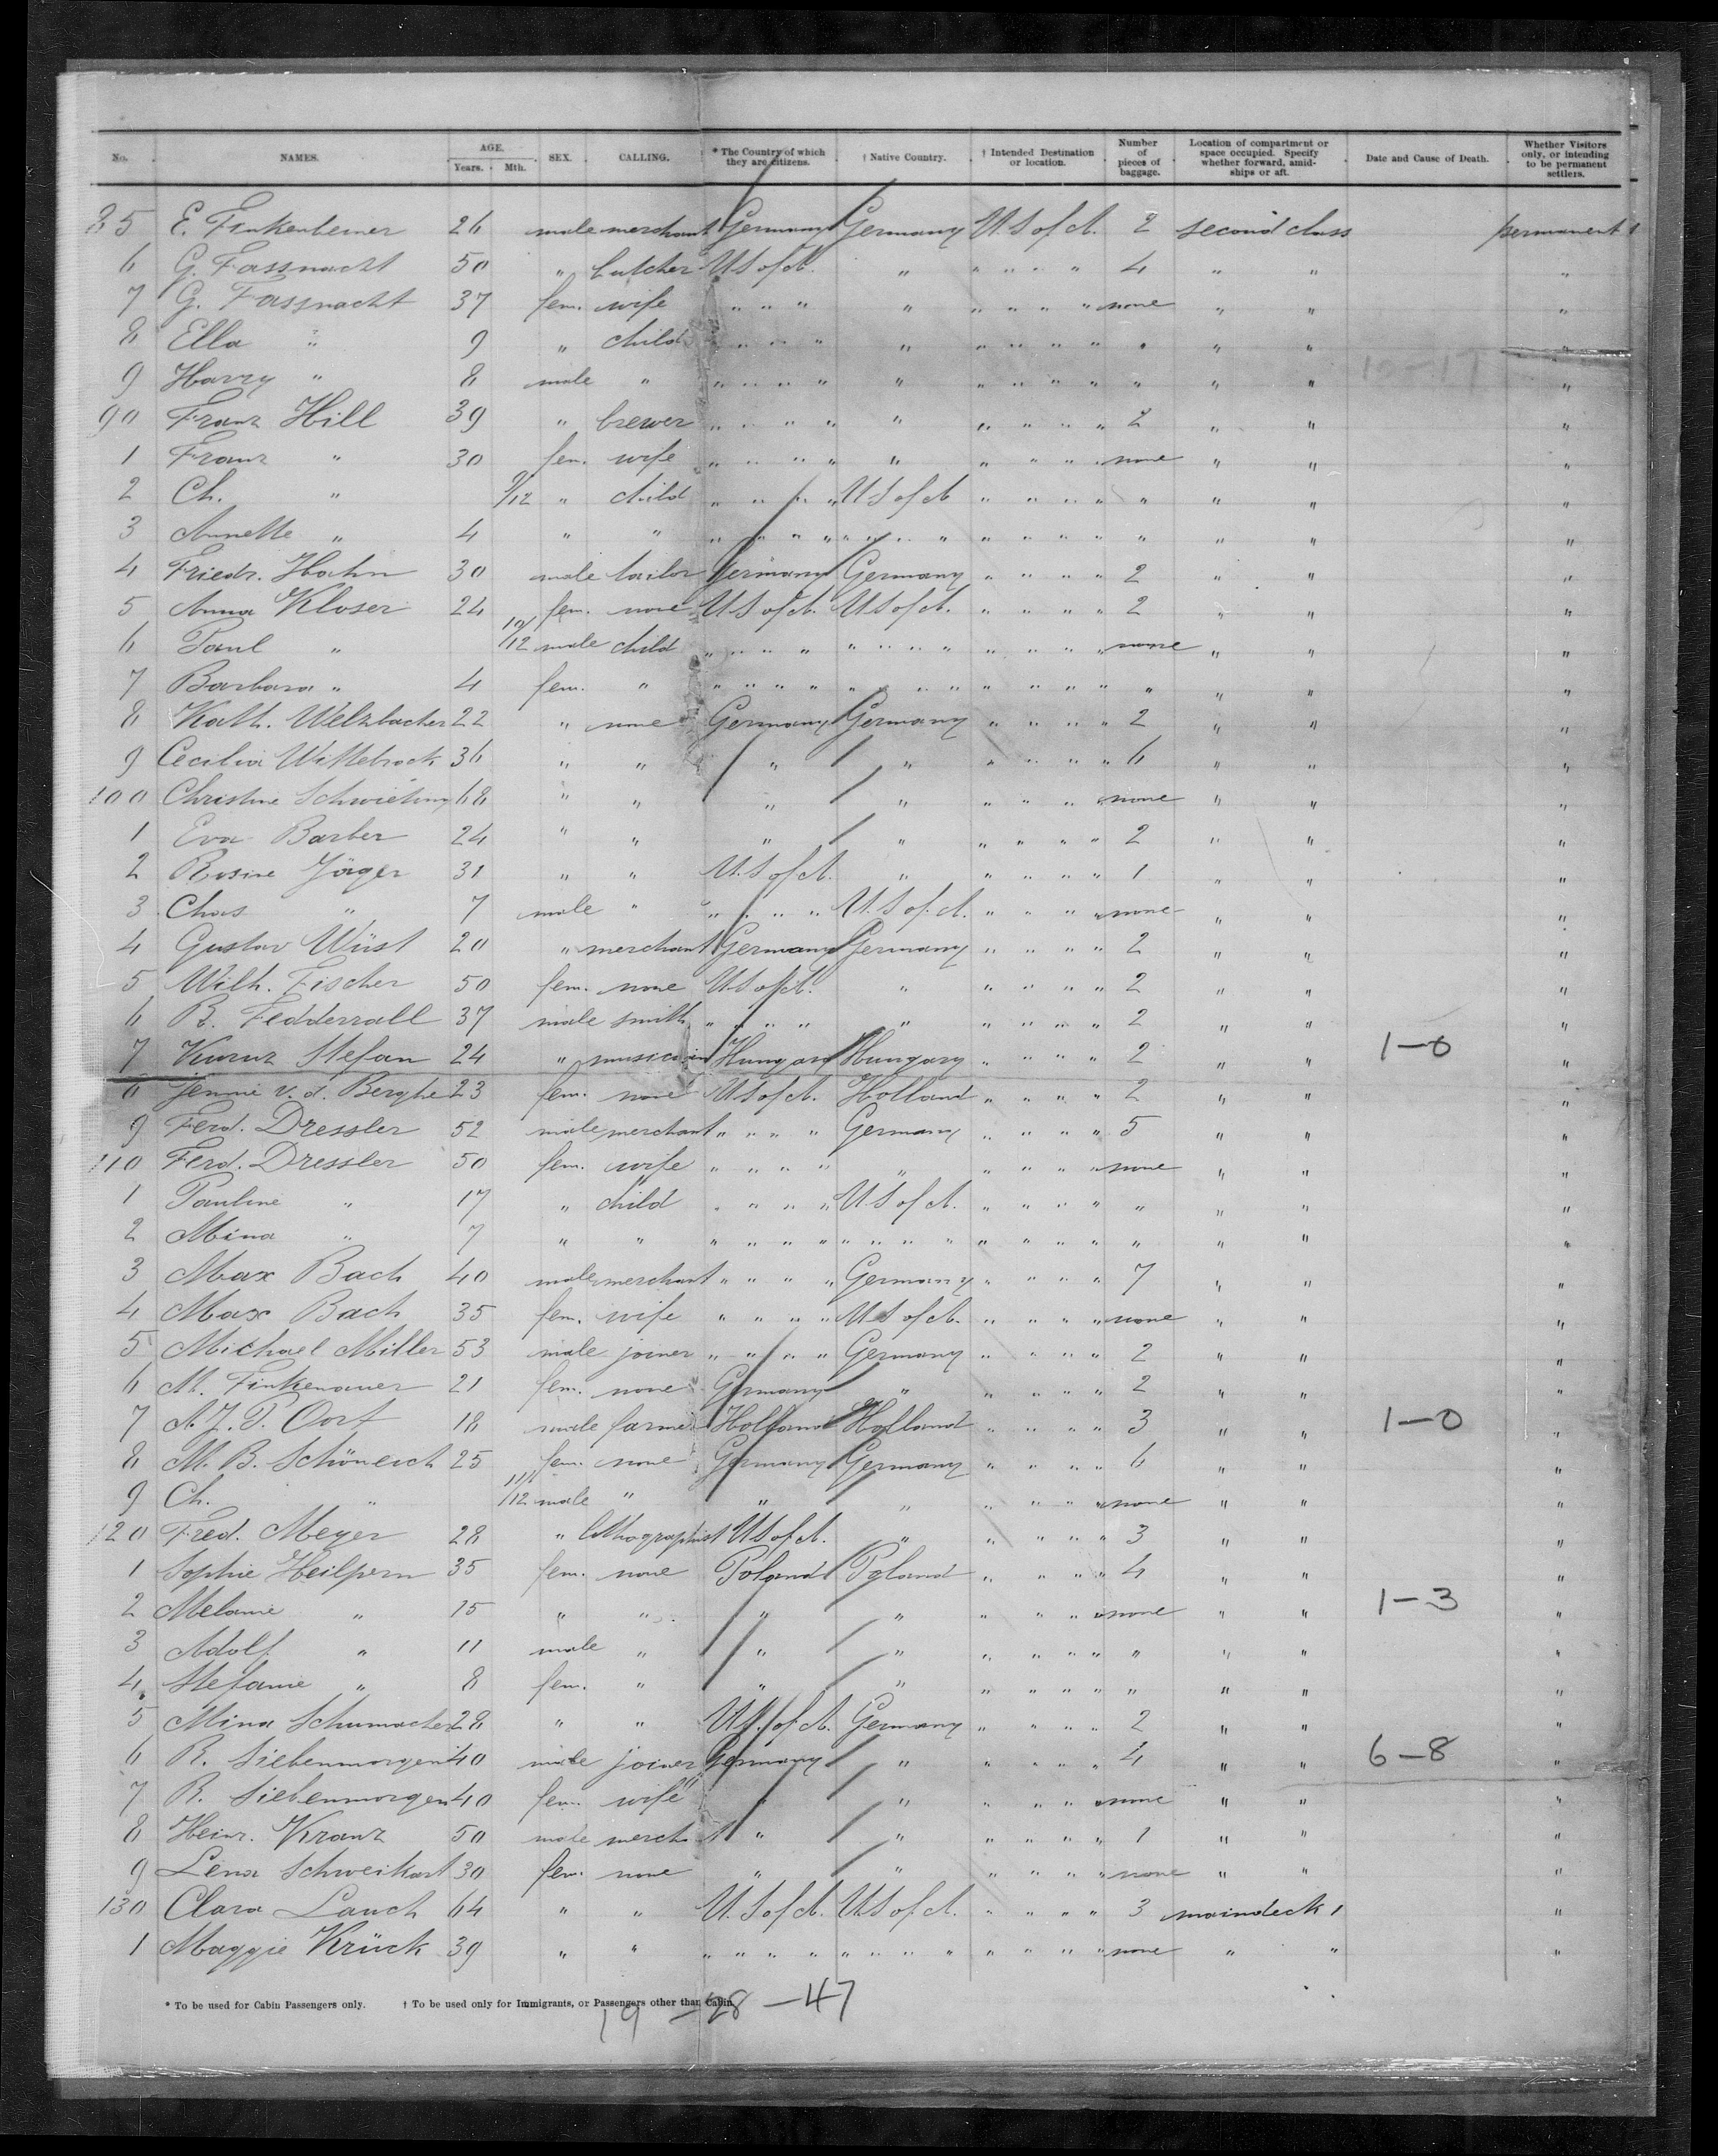 No. NAMES. AGE. Years. Mth. SEX. CALLING. * The Country of which they are citizens. † Native Country. † Intended Destination or location. Number of pieces of baggage. Location of compartment or space occupied. Specify whether forward, amidships or aft. Date and Cause of Death. Whether Visitors only, or intending to be permanent settlers.
85 E. 26 male merchant Germany Germany U.S of A. 2 second class permanent
6 G. Fassnacht 50 " butcher U.S of A. " " " " " 4 " " "
7 G. Fassnacht 37 fem. wife " " " " " " " " none " " "
8 Ella " 9 " child " " " " " " " " " " " " "
9 Harry " 8 male " " " " " " " " " " " " " "
90 Franz Hill 39 " brewer " " " " " " " " " 2 " " "
1 Franz " 30 fem. wife " " " " " " " " " none " " "
2 Ch. " 9/12 " child " " " " U.S of A " " " " " " " "
3 Annette " 4 " " " " " " " " " " " " " " " " " "
4 Friedr. Hahn 30 male tailor Germany Germany " " " " 2 " " "
5 Anna Kloser 24 fem. none U.S of A. U.S of A. " " " " 2 " " "
6 Paul " 10/12 male child " " " " " " " " " " " " none " " "
7 Barbara " 4 fem. " " " " " " " " " " " " " " " " "
8 Kath. Welzbacher 22 " none Germany Germany " " " " 2 " " "
9 Cecilia Wittebrock 36 " " " " " " " " 6 " " "
100 Christine Schwieting 68 " " " " " " " " none " " "
1 Eva Barber 24 " " " " " " " " 2 " " "
2 Rosine Jäger 31 " " U.S of A. " " " " " 1 " " "
3 Chas " 7 male " " " " " U.S of A. " " " " none " " "
4 Gustav Wüst 20 " merchant Germany Germany " " " " 2 " " "
5 Wilh. Fischer 50 fem. none U.S of A. " " " " " 2 " " "
6 R. Fedderrall 37 male smith " " " " " " " " " 2 " " "
7 Kuruz Stefan 24 " musician Hungary Hungary " " " " 2 " " 1-0 "
8 Jennie v. d. Berghe 23 fem. none U.S of A. Holland " " " " 2 " " "
9 Ferd. Dressler 52 male merchant " " " " Germany " " " " 5 " " "
110 Ferd. Dressler 50 fem. wife " " " " " " " " " none " " "
1 Pauline " 17 " child " " " " U.S of A. " " " " " " " "
2 Mina " 7 " " " " " " " " " " " " " " " " " "
3 Max Bach 40 male merchant " " " " Germany " " " " 7 " " "
4 Max Bach 35 fem. wife " " " " U.S of A. " " " " none " " "
5 Michael Miller 53 male joiner " " " " Germany " " " " 2 " " "
6 M. Finkenauer 21 fem. none Germany " " " " " 2 " " "
7 A. J. P. Oort 18 male farmer Holland Holland " " " " 3 " " 1-0 "
8 M. B. Schöneich 25 fem. none Germany Germany " " " " 6 " " "
9 Ch. " 11/12 male " " " " " " " none " " "
120 Fred. Meyer 28 " lithographist U.S of A. " " " " " 3 " " "
1 Sophie Heilpern 35 fem. none Poland Poland " " " " 4 " " "
2 Melanie " 15 " " " " " " " " none " " 1-3 "
3 Adolf " 11 male " " " " " " " " " " "
4 Stefanie " 8 fem. " " " " " " " " " " "
5 Mina Schumacher 28 " " U.S. of A. Germany " " " " 2 " " "
6 R. Siebenmorgen 40 male joiner Germany " " " " " 4 " " 6-8 "
7 R. Siebenmorgen 40 fem. wife " " " " " " none " " "
8 Heinr. Kranz 50 male mercht " " " " " " 1 " " "
9 Lena Schweikart 30 fem. none " " " " " " none " " "
130 Clara Lauch 64 " " U.S of A. U.S of A. " " " " 3 maindeck 1 "
1 Maggie Krück 39 " " " " " " " " " " " " " " none " " "
* To be used for Cabin Passengers only. † To be used only for Immigrants, or Passengers other than Cabin.
19 - 28 - 47